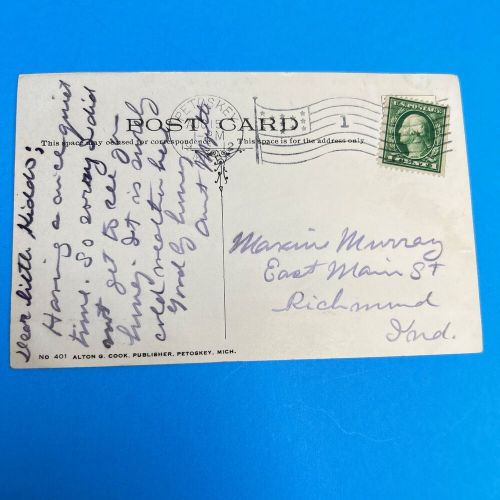 POST CARD
This space may be used for correspondence
This space is for the address only
PETOSKEY
PM
1
U.S. POSTAGE
Dear little Kiddo;
Having a nice quiet
time. So sorry I did
not get to see you
honey. It is
cold weather here
Good by honey
Aunt
Maxine Murray
East Main St
Richmond
Ind.
No 401 ALTON G. COOK, PUBLISHER, PETOSKEY, MICH.